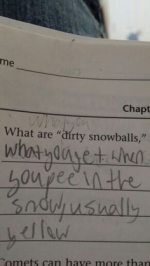 me
Chapt
What are "dirty snowballs,"
what you get when
you pee in the
snow, usually
yellow
Comets can have more than